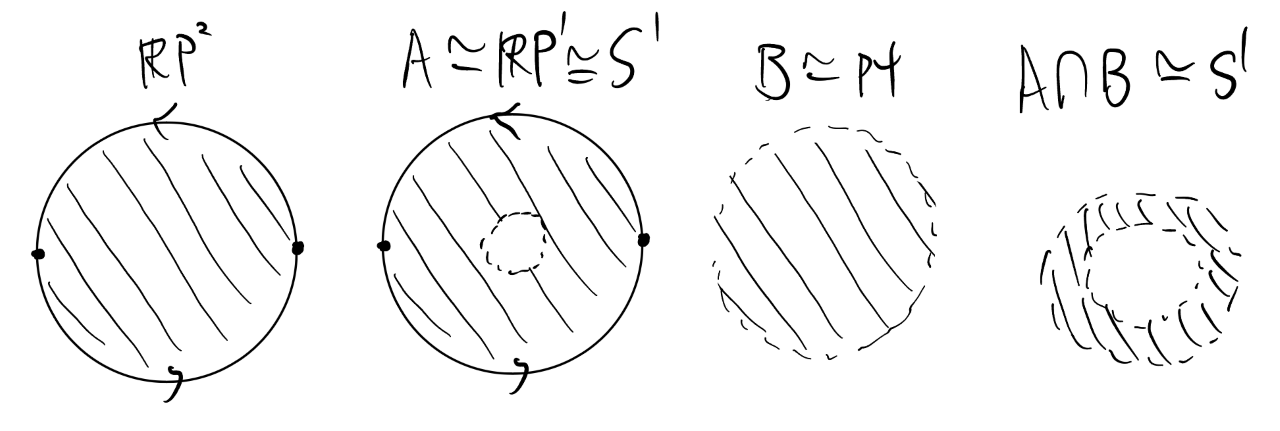 ℝP²
A ≃ ℝP¹ ≅ S¹
B ≃ pt
A∩B ≃ S¹